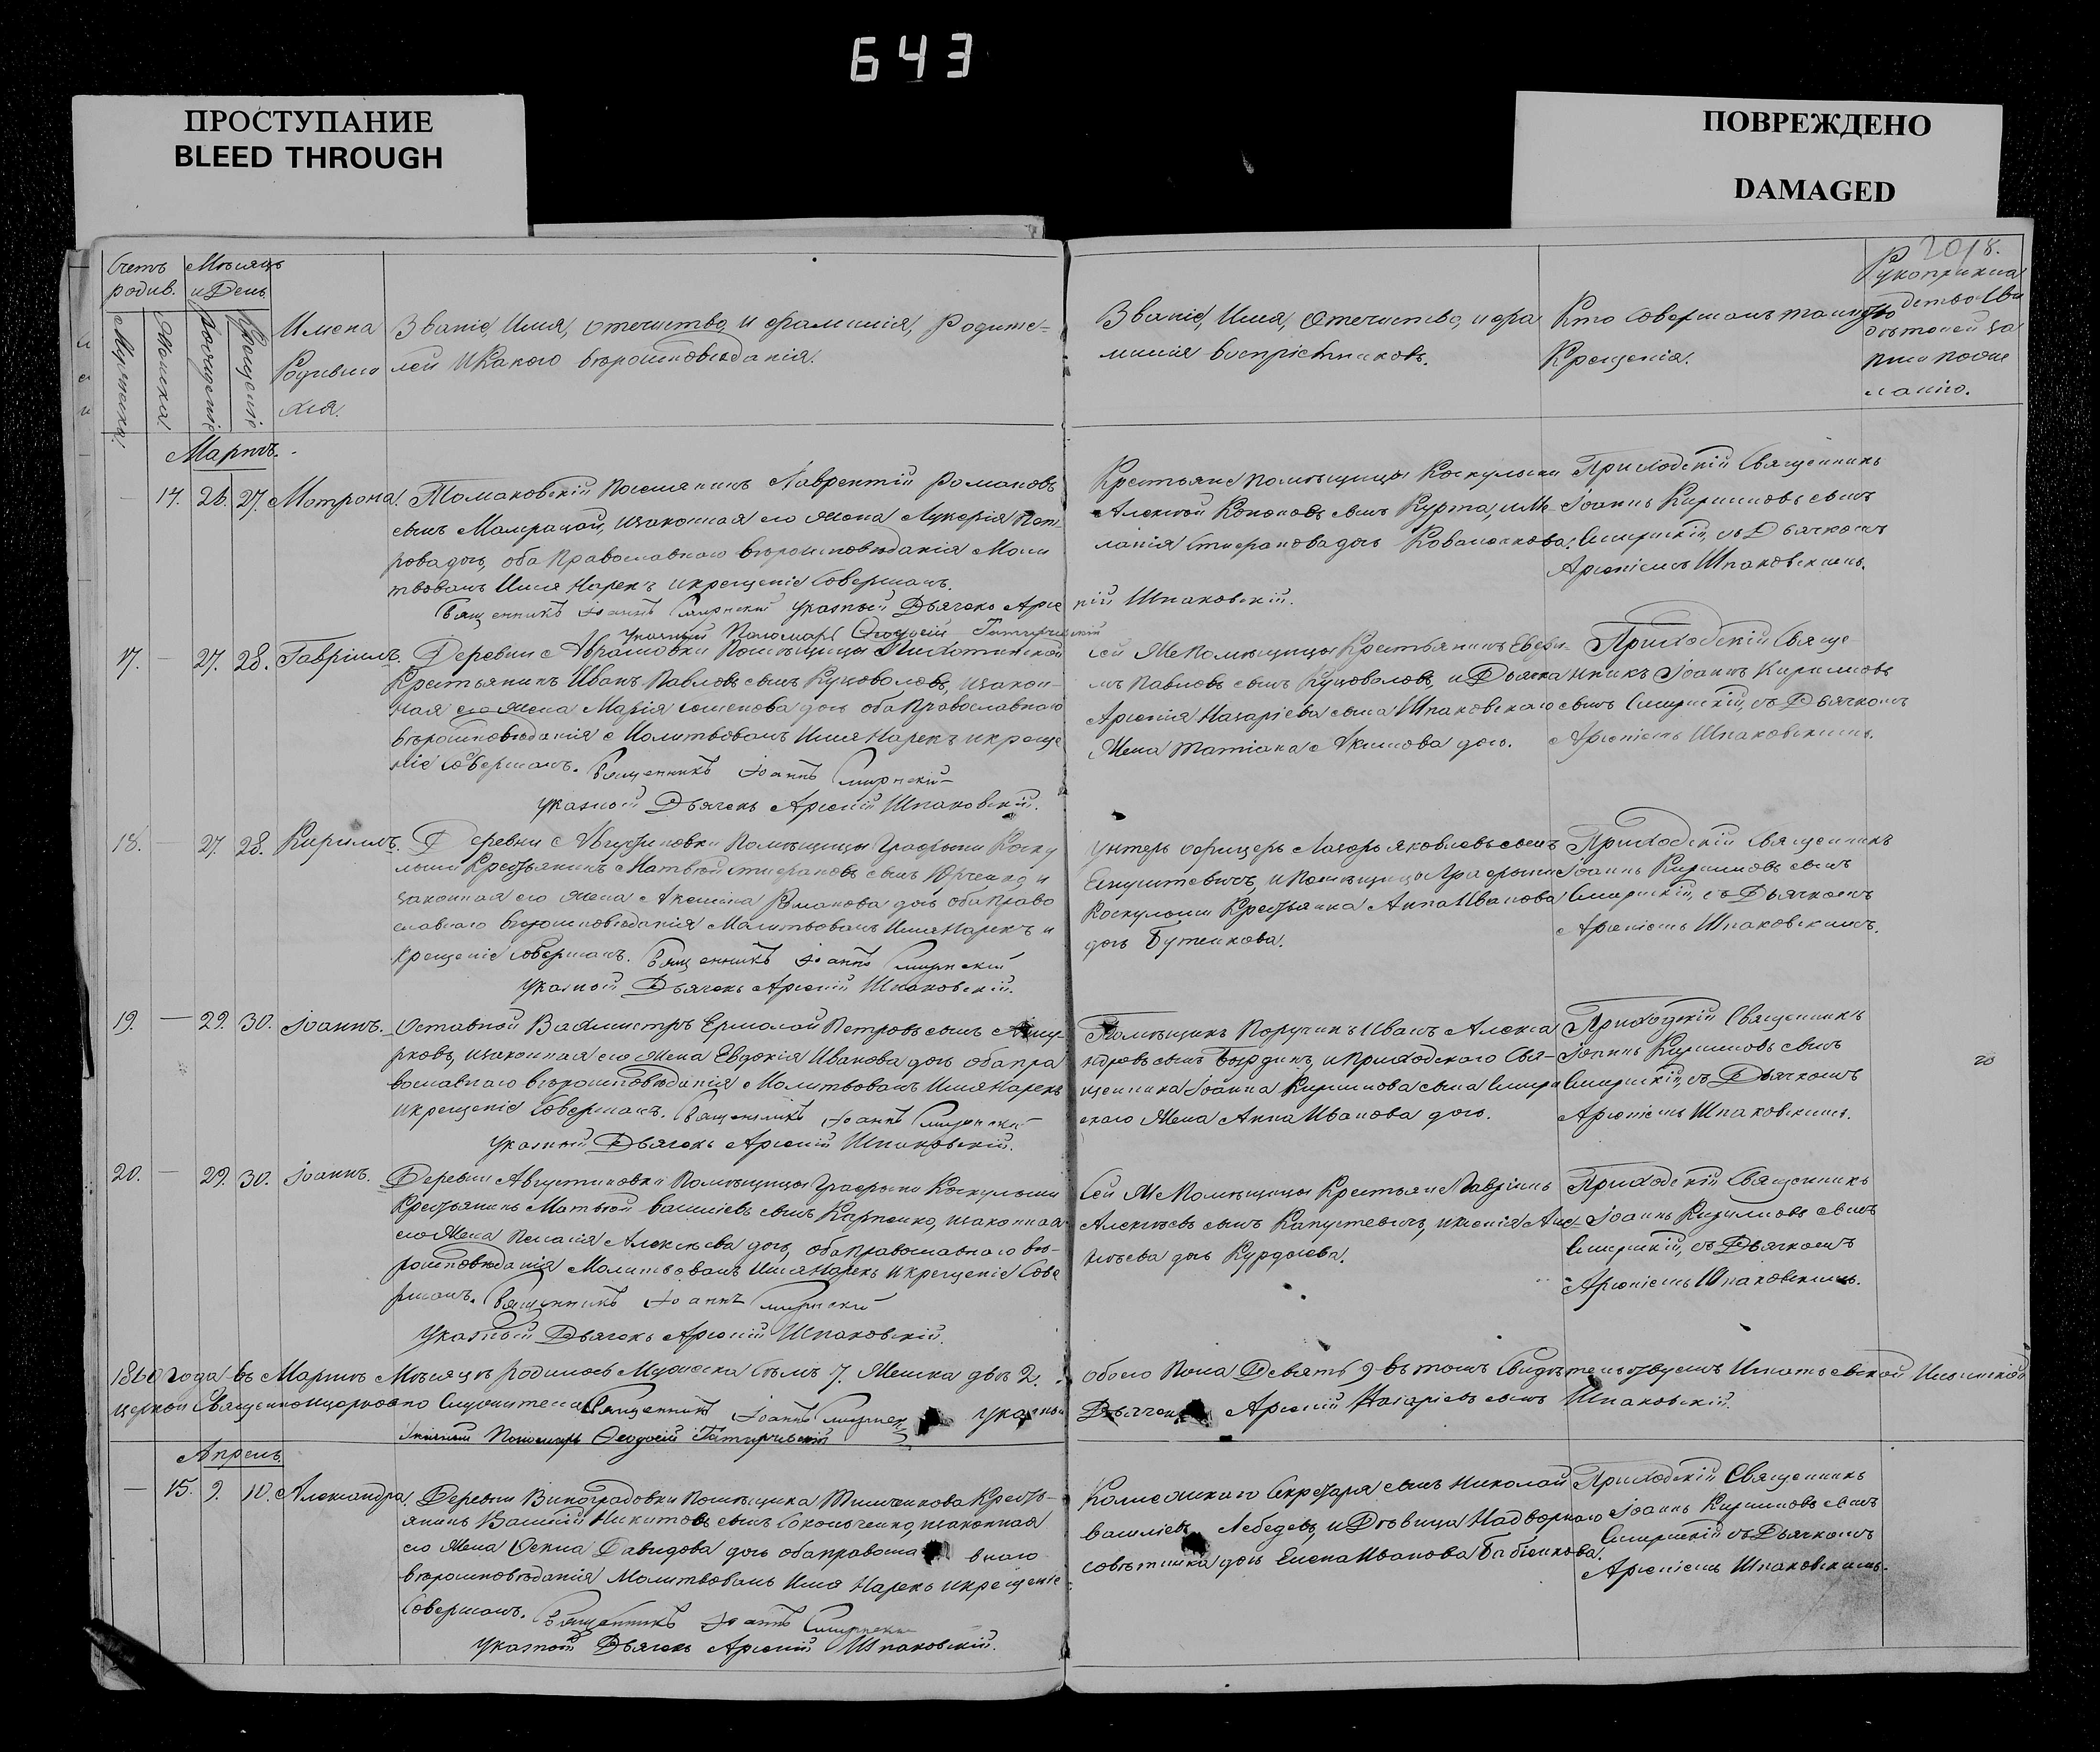 643
ПРОСТУПАНИЕ
BLEED THROUGH
ПОВРЕЖДЕНО
DAMAGED
Счетъ родив.
Мужеска.
Женска.
Мѣсяцъ и День
Рожденіе
Крещеніе
Имена
Родивши
хся.
Званіе, Имя, Отечество, и Фамилія, Родите=
лей И Какого вѣроисповѣданія.
Званіе, Имя, Отечество, и фа
милія воспріемниковъ.
Кто Совершалъ таинство
Крещенія.
Мартъ.
14. 26. 27. Мотрона.
Томаковскій Поселянинъ Лаврентій Романовъ
сынъ изаконная его Жена Лукерія Пет
рова дочь, оба Православнаго вѣроисповѣданія Моли
твовалъ Имя Нарекъ и крещеніе Совершалъ.
Священникъ Іоаннъ Смирнскій Указный Дьячокъ Арсе
ній Шпаковскій.
Указный Пономарь Ѳеодосій
Крестьяне помѣщицы
Алексѣй Кононовъ сынъ Курта, и Ме
ланія Стефанова дочь
Приходскій Священникъ
Іоаннъ Кириловъ сынъ
Смирнскій, съ Дьячкомъ
Арсеніемъ Шпаковскимъ.
17. — 27. 28. Гавріилъ.
Деревни Абрамовки Помѣщицы
Крестьянинъ Иванъ Павловъ сынъ Куцоволовъ, изакон-
ная его Жена Марія Семенова дочь оба Православнаго
вѣроисповѣданія Молитвовалъ Имя Нарекъ и креще
ніе Совершалъ. Священникъ Іоаннъ Смирнскій
Указной Дьячокъ Арсеній Шпаковскій.
сей Же Помѣщицы Крестьянинъ
Павловъ сынъ Куцоволовъ, и Дьячка
Арсенія Назаріева сына Шпаковскаго
Жена Татіана Акимова дочь.
Приходскій Свяще
нникъ Іоаннъ Кириловъ
сынъ Смирнскій, съ Дьячкомъ
Арсеніемъ Шпаковскимъ.
18. — 27. 28. Кирилъ.
Деревни Августиновки Помѣщицы Графыни
Крестьянинъ Матвѣй Стефановъ сынъ Юрченко, и
законная его Жена Аксенія Романова дочь оба право
славнаго вѣроисповѣданія Молитвовалъ Имя Нарекъ и
крещеніе Совершалъ. Священникъ Іоаннъ Смирнскій
Указной Дьячокъ Арсеній Шпаковскій.
Унтеръ офицеръ Лазарь Яковлевъ сынъ
и Помѣщицы Графыни
Крестьянка Анна Иванова
дочь Бутенкова.
Приходскій Священникъ
Іоаннъ Кириловъ сынъ
Смирнскій, съ Дьячкомъ
Арсеніемъ Шпаковскимъ.
19. — 29. 30. Іоаннъ.
Оставной Вахмистръ Ермолай Петровъ сынъ
изаконная его Жена Евдокія Иванова дочь оба пра
вославнаго вѣроисповѣданія Молитвовалъ Имя Нарекъ
и крещеніе Совершалъ. Священникъ Іоаннъ Смирнскій
Указный Дьячокъ Арсеній Шпаковскій.
Помѣщикъ Поручикъ Иванъ Алекса
ндровъ сынъ и Приходскаго Свя-
щенника Іоанна Кирилова сына Смирн
скаго Жена Анна Иванова дочь.
Приходскій Священникъ
Іоаннъ Кириловъ сынъ
Смирнскій, съ Дьячкомъ
Арсеніемъ Шпаковскимъ.
20. — 29. 30. Іоаннъ.
Деревни Августиновки Помѣщицы Графыни
Крестьянинъ Матвѣй Василіевъ сынъ Карпенко, изаконная
его Жена Пелагія Алексѣева дочь, оба православнаго вѣ-
роисповѣданія Молитвовалъ Имя Нарекъ и крещеніе Сове
ршалъ. Священникъ Іоаннъ Смирнскій
Указный Дьячокъ Арсеній Шпаковскій.
Сей Же Помѣщицы Крестьяне Гавріилъ
Алексѣевъ сынъ Капустевичъ,
дочь
Приходскій Священникъ
Іоаннъ Кириловъ сынъ
Смирнскій, съ Дьячкомъ
Арсеніемъ Шпаковскимъ.
1860 года въ Мартѣ Мѣсяцѣ родилось Мужеска 7. Женска двѣ 2.
обоего Пола Девять 9 въ томъ Свидѣтельствуемъ
церкви Священноцерковно Служители Священникъ Іоаннъ Указный
Дьячокъ Арсеній Назаріевъ сынъ Шпаковскій.
Указный Пономарь Ѳеодосій
Апрель
— 15. 9. 10. Александра.
Деревни Виноградовки Помѣщика Крестъ-
янинъ Василій Никитовъ сынъ изаконная
его Жена Давидова дочь оба православнаго
вѣроисповѣданія Молитвовалъ Имя Нарекъ и крещеніе
Совершалъ. Священникъ Іоаннъ Смирнскій
Указный Дьячокъ Арсеній Шпаковскій.
Колежскаго Секретаря сынъ Николай
Василіевъ Лебедевъ, и Дѣвица Надворнаго
совѣтника дочь Елена Иванова
Приходскій Священникъ
Іоаннъ Кириловъ сынъ
Смирнскій съ Дьячкомъ
Арсеніемъ Шпаковскимъ.